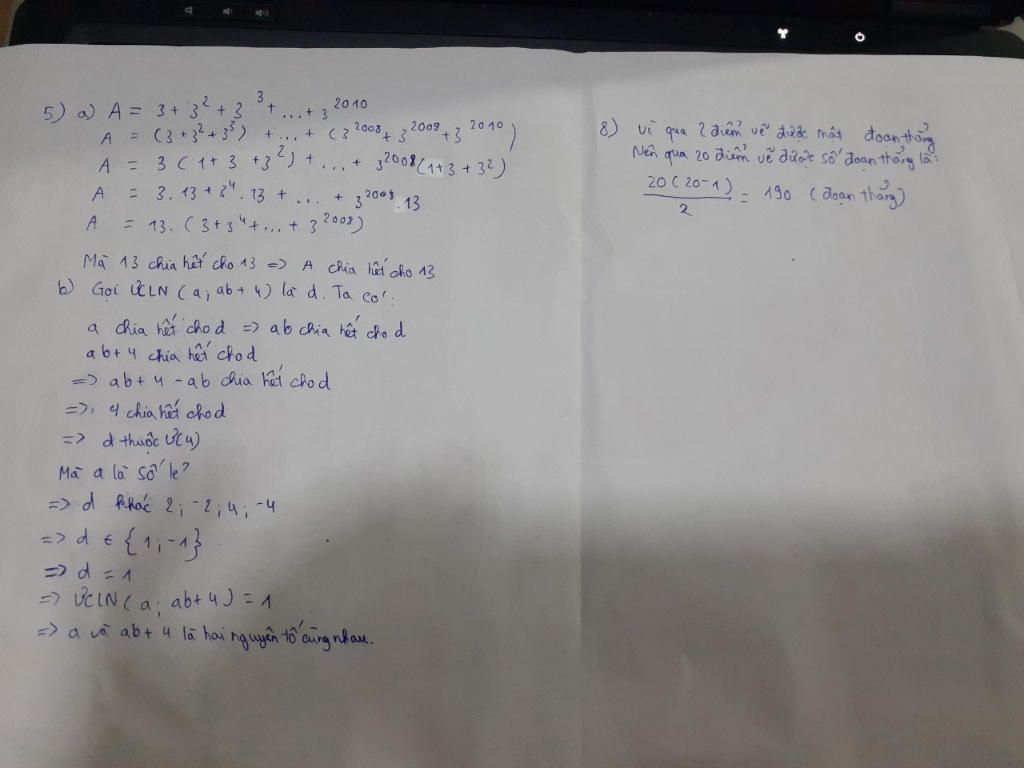 5) a) A = 3 + 3² + 3³ + ... + 3²⁰¹⁰
A = (3+3²+3³) + ... + (3²⁰⁰⁸ + 3²⁰⁰⁹ + 3²⁰¹⁰)
A = 3 (1 + 3 + 3²) + ... + 3²⁰⁰⁸ (1 + 3 + 3²)
A = 3.13 + 3⁴.13 + ... + 3²⁰⁰⁸.13
A = 13.(3+3⁴+...+ 3²⁰⁰⁸)
Mà 13 chia hết cho 13 => A chia hết cho 13
b) Gọi ƯCLN (a; ab+4) là d. Ta có:
a chia hết cho d => ab chia hết cho d
ab+4 chia hết cho d
=> ab+4 - ab chia hết cho d
=> 4 chia hết cho d
=> d thuộc Ư(4)
Mà a là số lẻ
=> d khác 2; -2; 4; -4
=> d ∈ {1; -1}
=> d = 1
=> ƯCLN (a; ab+4) = 1
=> a và ab+4 là hai nguyên tố cùng nhau.
8) Vì qua 2 điểm vẽ được một đoạn thẳng
Nên qua 20 điểm vẽ được số đoạn thẳng là:
20(20-1)/2 = 190 (đoạn thẳng)